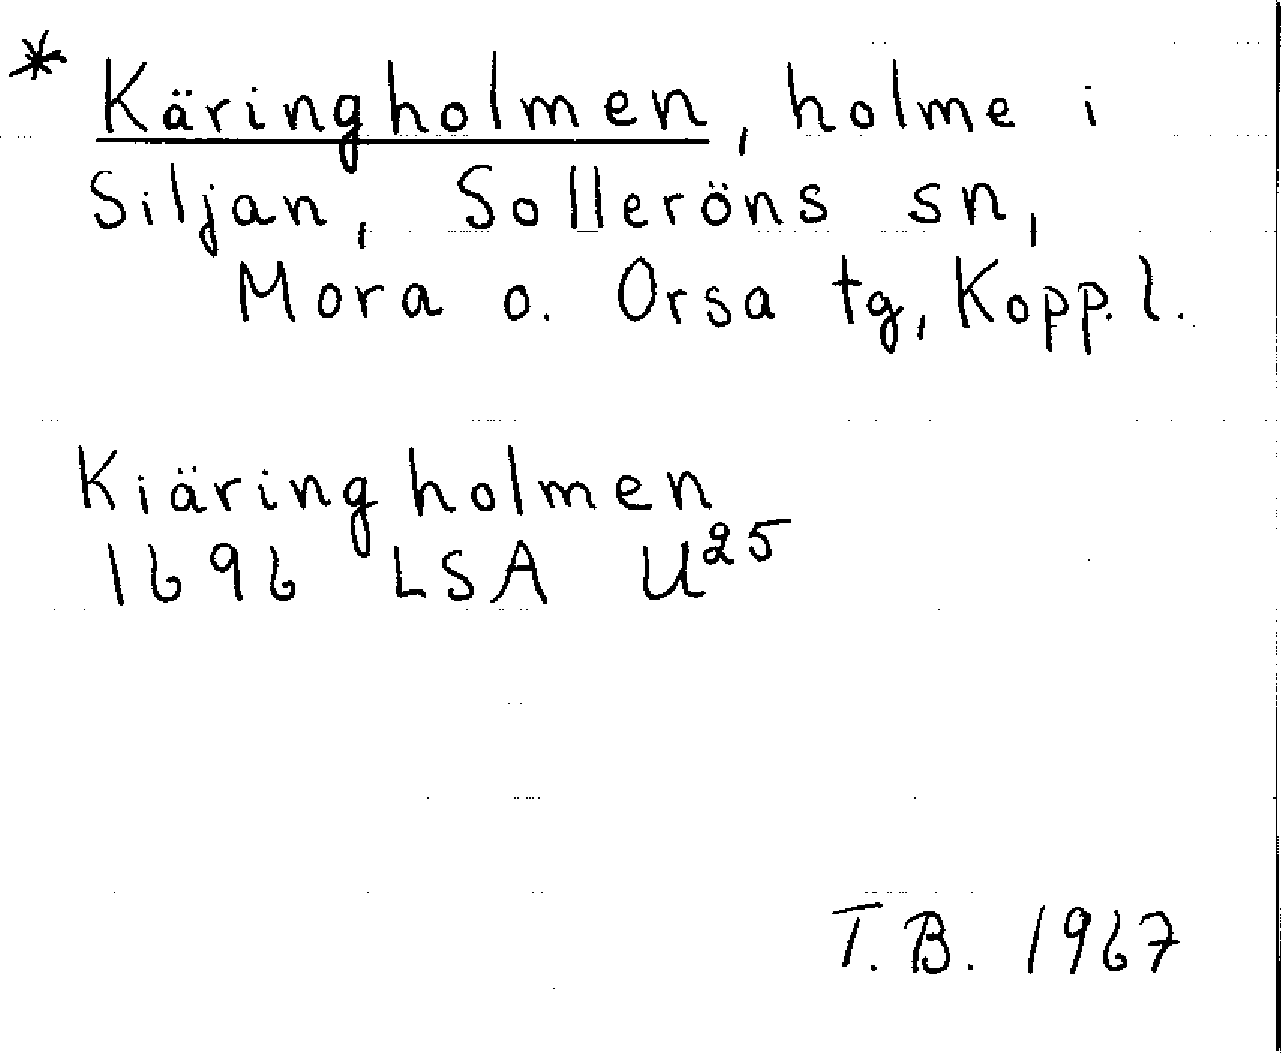 * Käringholmen, holme i
Siljan, Solleröns sn,
Mora o. Orsa tg, Kopp. l.
Kiäringholmen
1696 LSA U²⁵
T.B. 1967